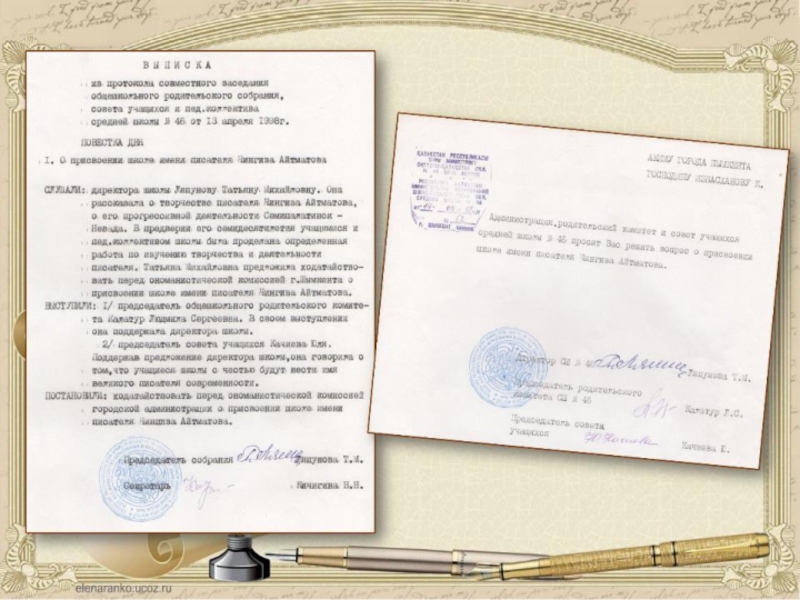 ВЫПИСКА
из протокола совместного заседания
общешкольного родительского собрания,
совета учащихся и пед.коллектива
средней школы № 46 от 13 апреля 1998г.
ПОВЕСТКА ДНЯ
1. О присвоении школе имени писателя Чингиза Айтматова
СЛУШАЛИ: директора школы Ляпунову Татьяну Михайловну. Она
рассказала о творчестве писателя Чингиза Айтматова,
о его прогрессивной деятельности Семипалатинск -
Невада. В преддверии его семидесятилетия учащимися и
пед.коллективом школы была проделана определенная
работа по изучению творчества и деятельности
писателя. Татьяна Михайловна предложила ходатайство-
вать перед ономанистической комиссией г.Шымкента о
присвоении школе имени писателя Чингиза Айтматова.
ВЫСТУПИЛИ: 1/ председатель общешкольного родительского комите-
та Калатур Людмила Сергеевна. В своем выступлении
она поддержала директора школы.
2/ председатель совета учащихся Качиева Юля.
Поддержав предложение директора школы,она говорила о
том,что учащиеся школы с честью будут нести имя
великого писателя современности.
ПОСТАНОВИЛИ: ходатайствовать перед ономанистической комиссией
городской администрации о присвоении школе имени
писателя Чингиза Айтматова.
Председатель собрания Ляпунова Т.М.
Секретарь Кичигина Н.Н.
АКИМУ ГОРОДА ШЫМКЕНТА
ГОСПОДИНУ
Администрация,родительский комитет и совет учащихся
средней школы № 46 просят Вас решить вопрос о присвоении
школе имени писателя Чингиза Айтматова.
Директор СШ № 46 Ляпунова Т.М.
Председатель родительского
комитета СШ № 46 Калатур Л.С.
Председатель совета
учащихся Качиева Ю.
elenaranko.ucoz.ru